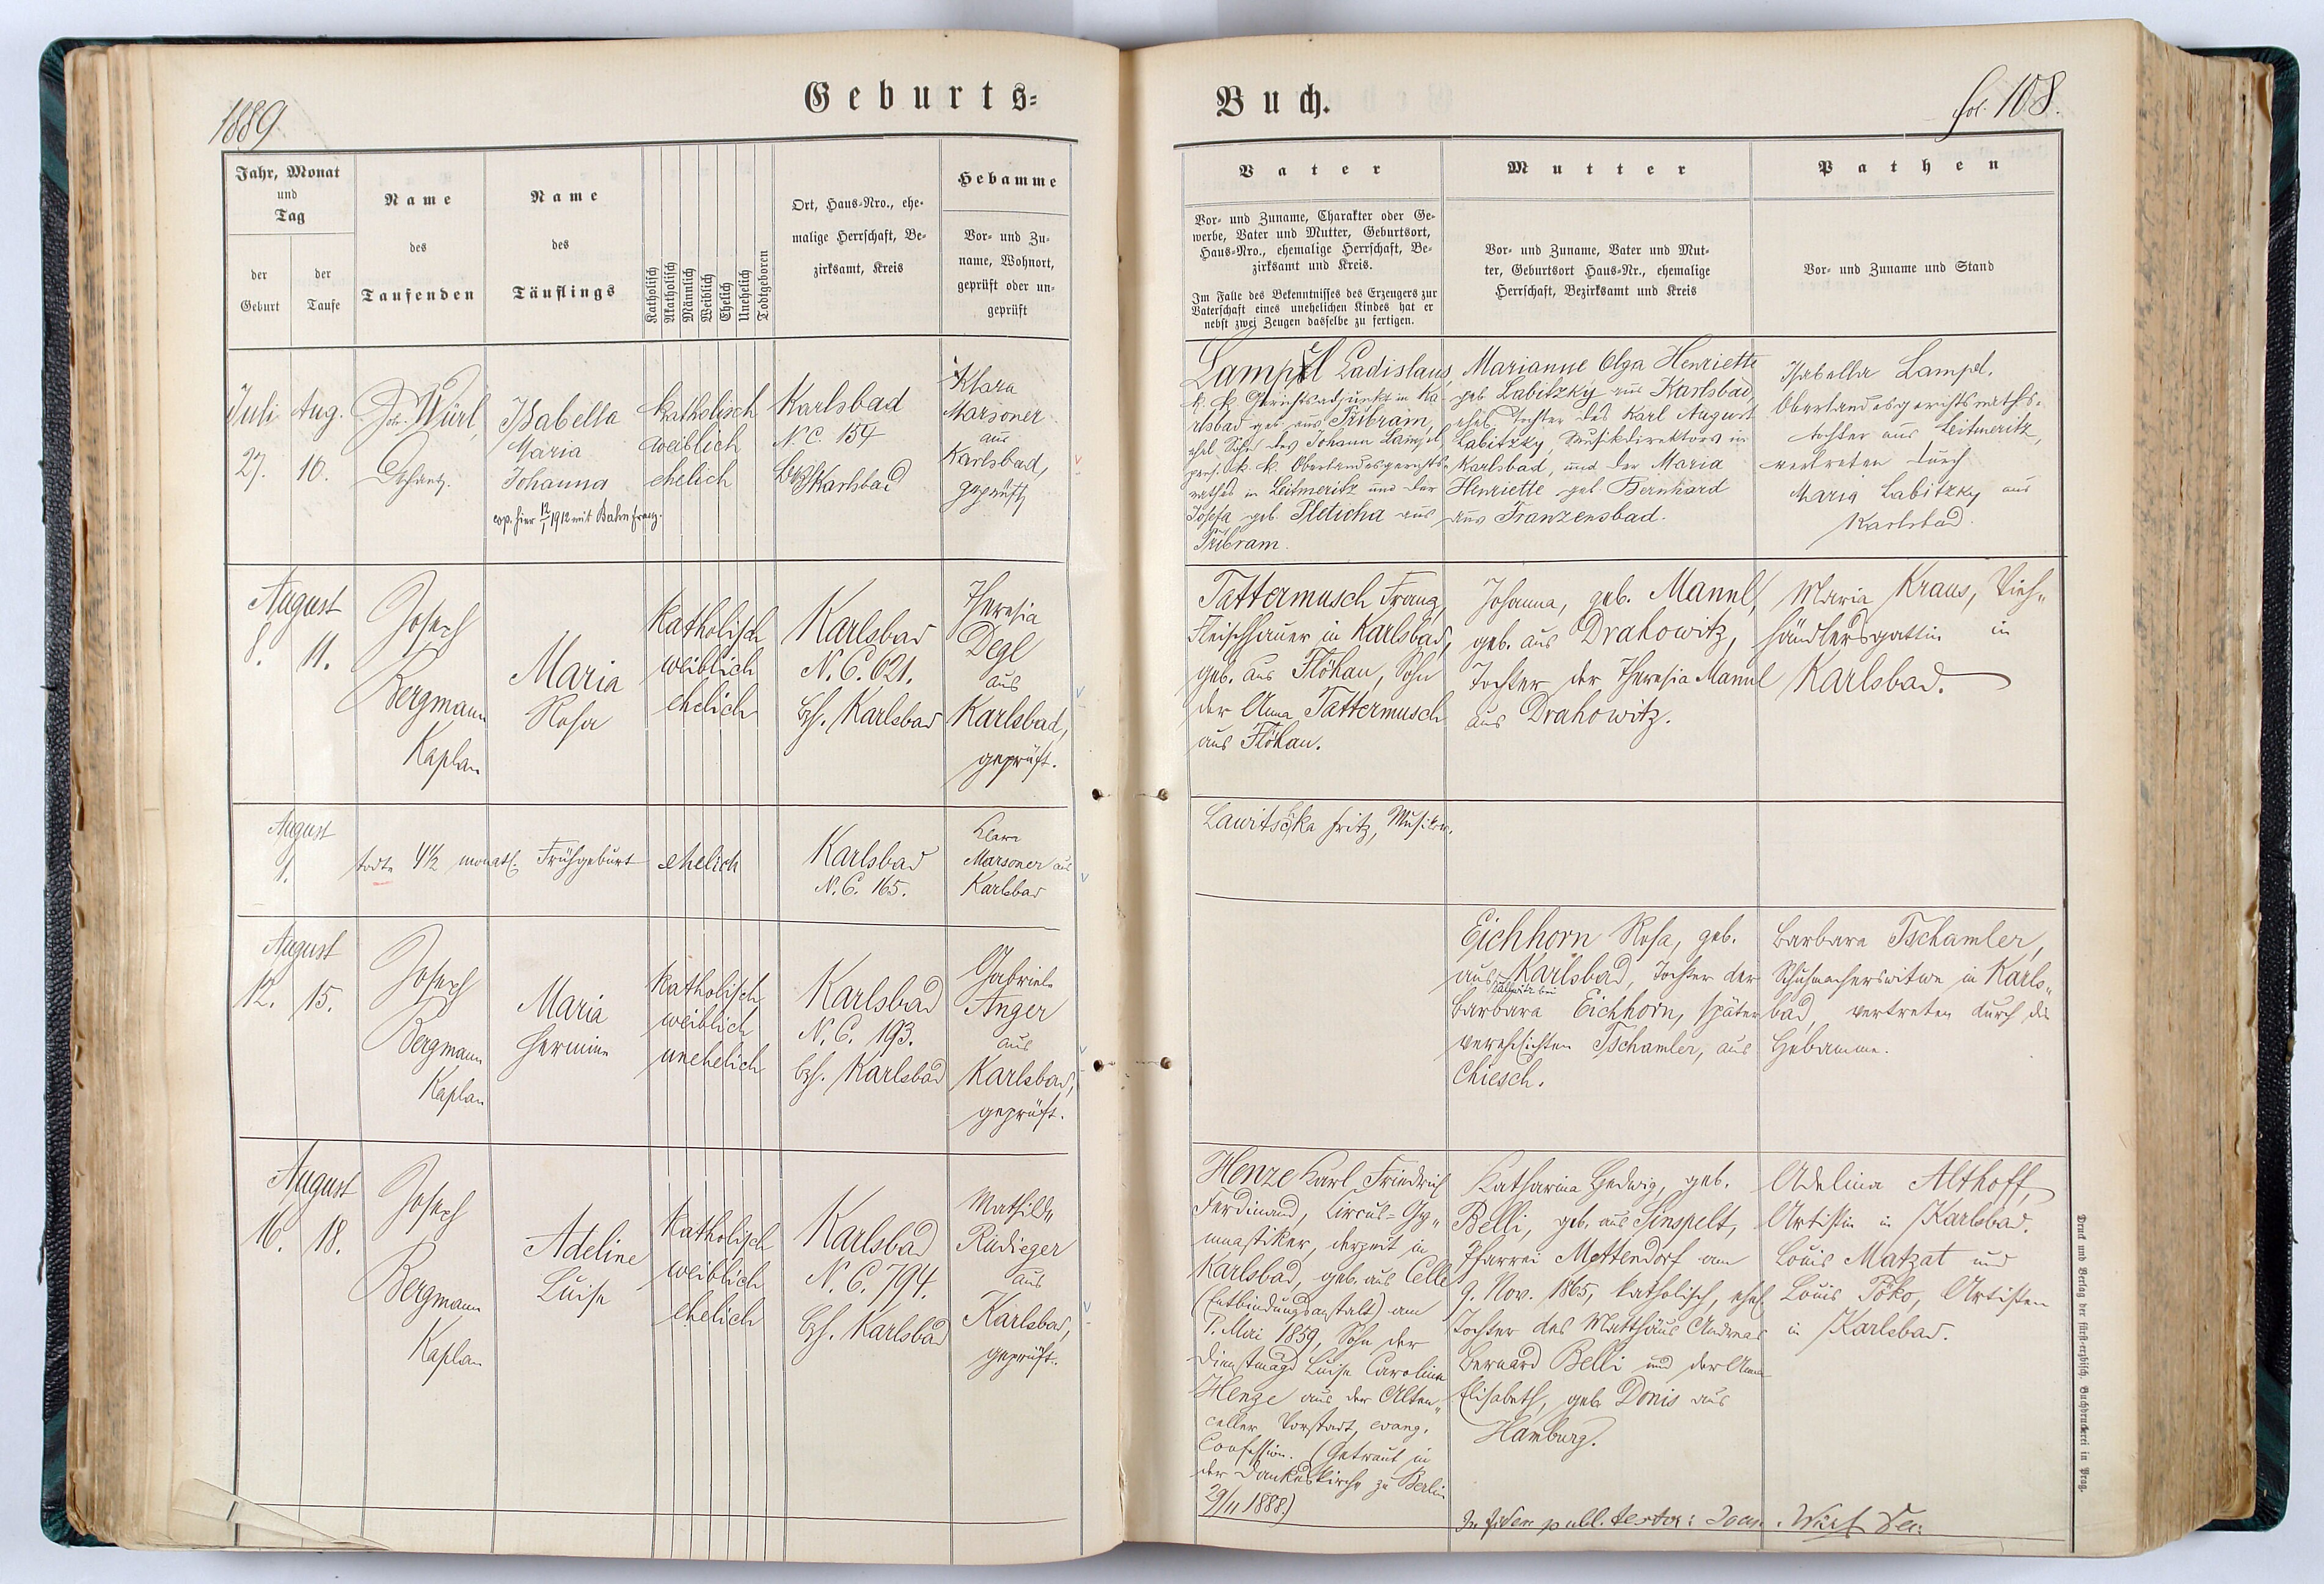 1889
Geburts=
Buch.
fol. 108.
Jahr, Monat
und
Tag
der
Geburt
der
Taufe
Name
des
Taufenden
Name
des
Täuflings
Katholisch
Akatholisch
Männlich
Weiblich
Ehelich
Unehelich
Todtgeboren
Ort, Haus-Nro., ehe-
malige Herrschaft, Be-
zirksamt, Kreis
Hebamme
Vor- und Zu-
name, Wohnort,
geprüft oder un-
geprüft
Vater
Vor- und Zuname, Charakter oder Ge-
werbe, Vater und Mutter, Geburtsort,
Haus-Nro., ehemalige Herrschaft, Be-
zirksamt und Kreis.
Im Falle des Bekenntnisses des Erzeugers zur
Vaterschaft eines unehelichen Kindes hat er
nebst zwei Zeugen dasselbe zu fertigen.
Mutter
Vor- und Zuname, Vater und Mut-
ter, Geburtsort Haus-Nr., ehemalige
Herrschaft, Bezirksamt und Kreis
Pathen
Vor- und Zuname und Stand
Juli
27.
Aug.
10.
Joh. Würl,
Dechant.
Isabella
Maria
Johanna
cop. hier 12/1 1912 mit Bahn Franz.
katholisch
weiblich
ehelich
Karlsbad
N.C. 154
Bzh Karlsbad
Klara
Marsoner
aus
Karlsbad,
geprüft
Lampel Ladislaus,
k. k. Gerichtsadjunkt in Ka-
rlsbad geb. aus Pribram,
ehel. Sohn des Johann Lampel
pens. k. k. Oberlandesgerichts-
rathes in Leitmeritz und der
Josefa geb. Pleticha aus
Pribram.
Marianne Olga Henriette
geb. Labitzky aus Karlsbad,
ehel. Tochter des Karl August
Labitzky, Musikdirektors in
Karlsbad, und der Maria
Henriette geb. Bernhard
aus Franzensbad.
Isabella Lampel.
Oberlandesgerichtsraths-
tochter aus Leitmeritz,
vertreten durch
Maria Labitzky aus
Karlsbad.
August
8.
11.
Josef
Bergmann
Kaplan
Maria
Rosa
katholisch
weiblich
ehelich
Karlsbad
N.C. 621.
Bzh. Karlsbad
Theresia
Degl
aus
Karlsbad,
geprüft.
Tattermusch Franz,
Fleischhauer in Karlsbad,
geb. aus Flöhau, Sohn
der Anna Tattermusch
aus Flöhau.
Johanna, geb. Mannl,
geb. aus Drahowitz,
Tochter der Theresia Mannl
aus Drahowitz.
Maria Kraus, Vieh-
händlersgattin in
Karlsbad.
August
1.
todte 4½ monatl. Frühgeburt
ehelich
Karlsbad
N.C. 165.
Klara
Marsoner aus
Karlsbad
Lawitschka Fritz, Musiker.
August
12.
15.
Josef
Bergmann
Kaplan
Maria
Hermine
katholisch
weiblich
unehelich
Karlsbad
N.C. 193.
Bzh. Karlsbad
Gabriele
Anger
aus
Karlsbad,
geprüft.
Eichhorn Rosa, geb.
aus Karlsbad, Tochter der
Barbara Eichhorn, später
verehelichten Tschamler, aus
Chiesch.
Barbara Tschamler,
Schuhmacherswitwe in Karls-
bad, vertreten durch die
Hebamme.
August
16.
18.
Josef
Bergmann
Kaplan
Adeline
Luise
katholisch
weiblich
ehelich
Karlsbad
N.C. 794.
Bzh. Karlsbad
Mathilde
Rudieger
aus
Karlsbad,
geprüft.
Henze Karl Friedrich
Ferdinand, Circus-Gy-
mnastiker, derzeit in
Karlsbad, geb. aus Celle
(Entbindungsanstalt) am
1. Mai 1859, Sohn der
Dienstmagd Luise Carolina
Henze aus der Alten-
celler Vorstadt, evang.
Confession. (Getraut in
der Dankeskirche zu Berlin
29/11 1888.)
Katharina Hedwig, geb.
Belli, geb. aus Sinspelt,
Pfarrei Mettendorf am
9. Nov. 1865, katholisch, ehel.
Tochter des Matthäus Andreas
Bernard Belli und der Anna
Elisabeth, geb. Donis aus
Hamburg.
Adelina Althoff,
Artistin in Karlsbad.
Louis Matzat und
Louis Poko, Artisten
in Karlsbad.
In fidem publ. testor: Joan. Würl Dec:
Druck und Verlag der fürst-erzbisch. Buchdruckerei in Prag.